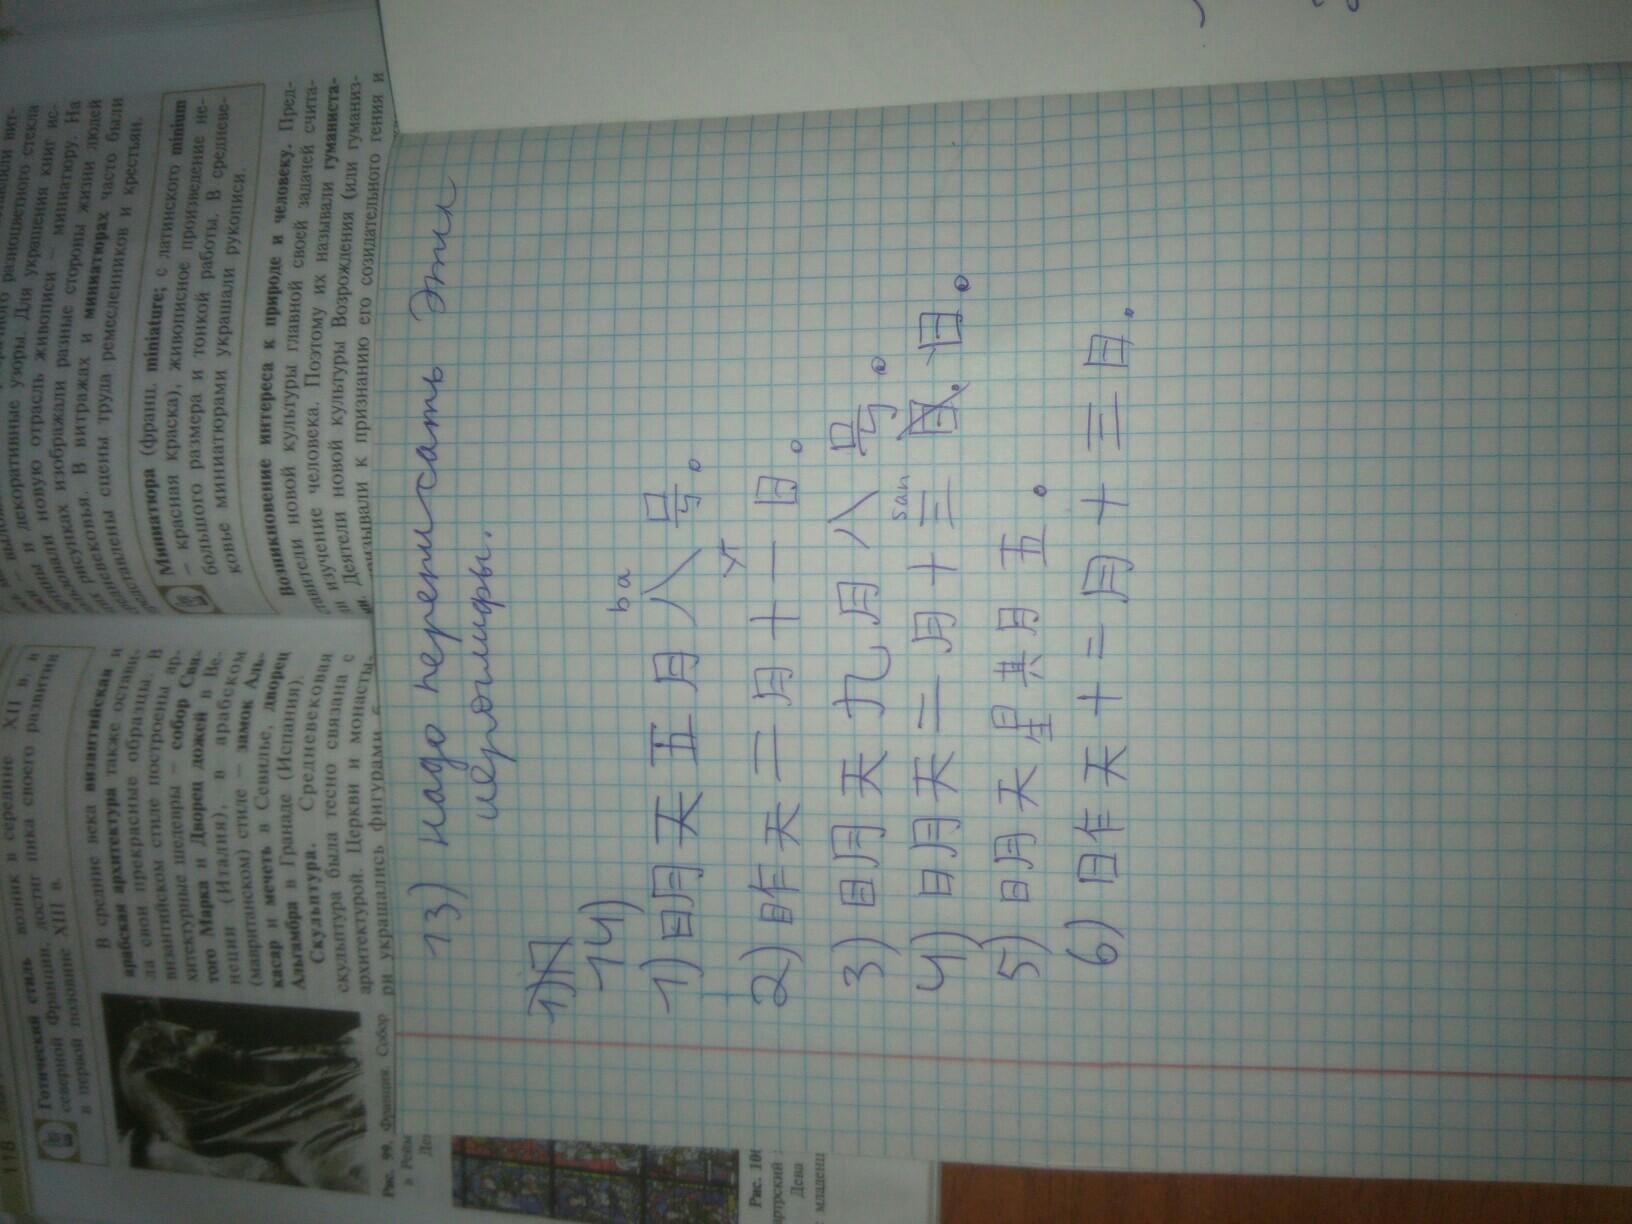 118
Готический стиль возник в середине XII в. в
северной Франции, достиг пика своего развития
в первой половине XIII в.
В средние века византийская и
арабская архитектура также остави-
ла свои прекрасные образцы. В
византийском стиле построены ар-
хитектурные шедевры – собор Свя-
того Марка и Дворец дожей в Ве-
неции (Италия), в арабском
(мавританском) стиле – замок Аль-
касар и мечеть в Севилье, дворец
Альгамбра в Гранаде (Испания).
Скульптура. Средневековая
скульптура была тесно связана с
архитектурой. Церкви и монасты-
ри украшались фигурами
Рис. 99. Франция. Собор
в Рейм
Рис. 100
артрский
Дева
младенц
и декоративные узоры. Для украшения книг ис-
новую отрасль живописи – миниатюру. На
рисунках изображали разные стороны жизни людей
средневековья. В витражах и миниатюрах часто были
представлены сцены труда ремесленников и крестьян.
Миниатюра (франц. miniature; с латинского minium
– красная краска), живописное произведение не-
большого размера и тонкой работы. В средневе-
ковье миниатюрами украшали рукописи.
Возникновение интереса к природе и человеку. Пред-
ставители новой культуры главной своей задачей счита-
ли изучение человека. Поэтому их называли гуманиста-
ми. Деятели новой культуры Возрождения (или гуманиз-
призывали к признанию его созидательного гения и
13) надо переписать эти
иероглифы.
14)
ba
1) 明天五月八号。
yi
2) 昨天二月十一日。
3) 明天九月八号。
san
4) 明天二月十三日。
5) 明天星期五。
6) 昨天十二月十三日。